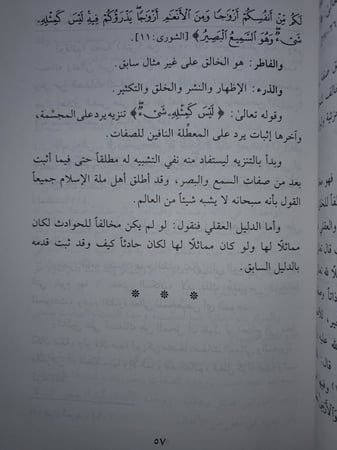 لَكُم مِّنْ أَنفُسِكُمْ أَزْوَٰجًا وَمِنَ ٱلْأَنْعَٰمِ أَزْوَٰجًا يَذْرَؤُكُمْ فِيهِ لَيْسَ كَمِثْلِهِۦ
شَىْءٌ وَهُوَ ٱلسَّمِيعُ ٱلْبَصِيرُ﴾ [الشورى: ١١].
والفاطر: هو الخالق على غير مثال سابق.
والذرء: الإظهار والنشر والخلق والتكثير.
وقوله تعالىٰ: ﴿لَيْسَ كَمِثْلِهِۦ شَىْءٌ﴾ تنزيه يرد على المجسِّمة،
وآخرها إثبات يرد على المعطِّلة النافين للصفات.
وبدأ بالتنزيه ليستفاد منه نفي التشبيه له مطلقاً حتى فيما أثبت
بعد من صفات السمع والبصر، وقد أطلق أهل ملة الإسلام جميعاً
القول بأنه سبحانه لا يشبه شيئاً من العالم.
وأما الدليل العقلي فنقول: لو لم يكن مخالفاً للحوادث لكان
مماثلًا لها ولو كان مماثلًا لها لكان حادثاً كيف وقد ثبت قدمه
بالدليل السابق.
* * *
٥٧